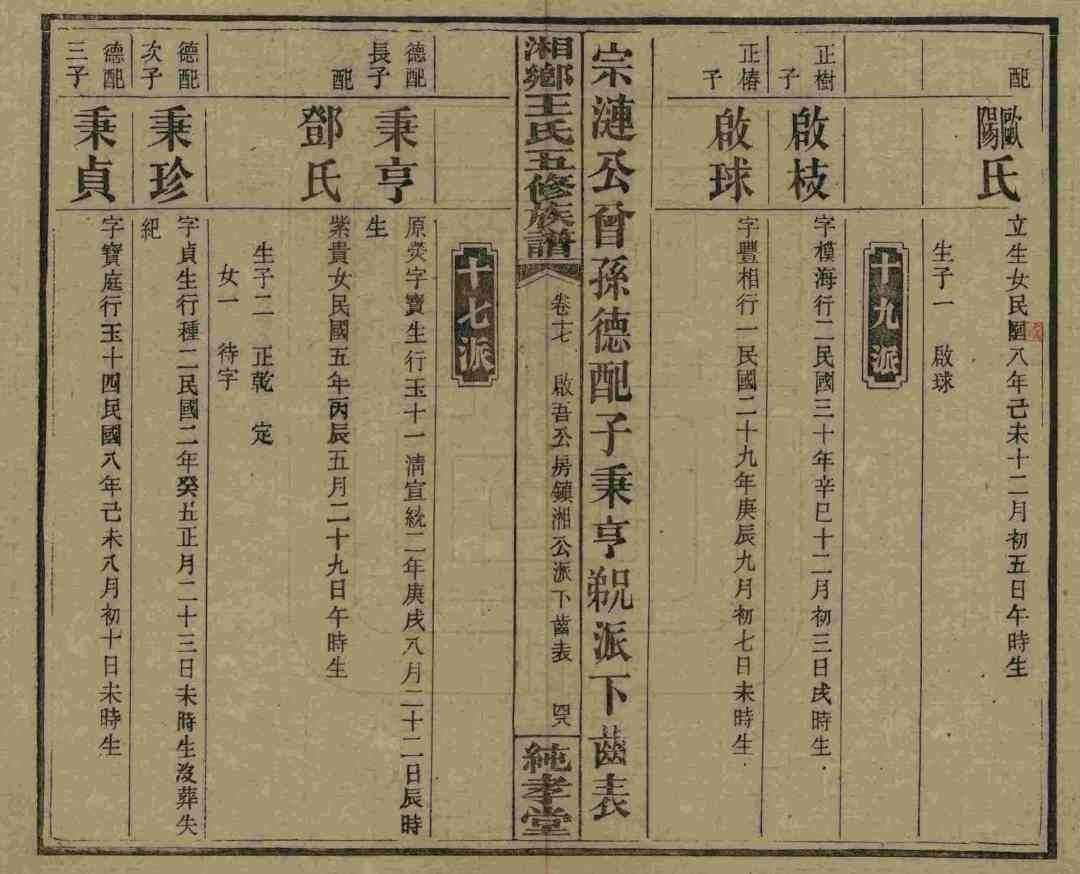 配
歐陽氏
立生女民國八年己未十二月初五日午時生
生子一 啟球
十九派
正樹子
啟枝
字模海行二民國三十年辛巳十二月初三日戌時生
正椿子
啟球
字豐相行一民國二十九年庚辰九月初七日未時生
宗漣公曾孫德配子秉亨
派下齒表
湘鄉王氏五修族譜
卷十七 啟吾公房鎮湘公派下齒表 四八
純孝堂
十七派
德配長子
秉亨
原熒字寶生行玉十一清宣統二年庚戌八月二十二日辰時
生
配
鄧氏
紫貴女民國五年丙辰五月二十九日午時生
生子二 正乾 定
女一 待字
德配次子
秉珍
字貞生行種二民國二年癸丑正月二十三日未時生沒葬失
紀
德配三子
秉貞
字寶庭行玉十四民國八年己未八月初十日未時生